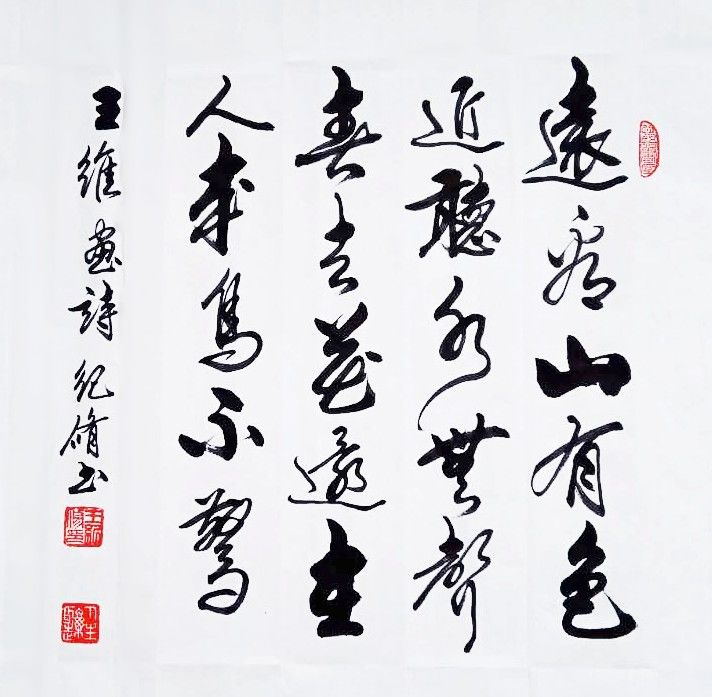 遠看山有色
近聽水無聲
春去花還在
人來鳥不驚
王維畫詩 紀脩书